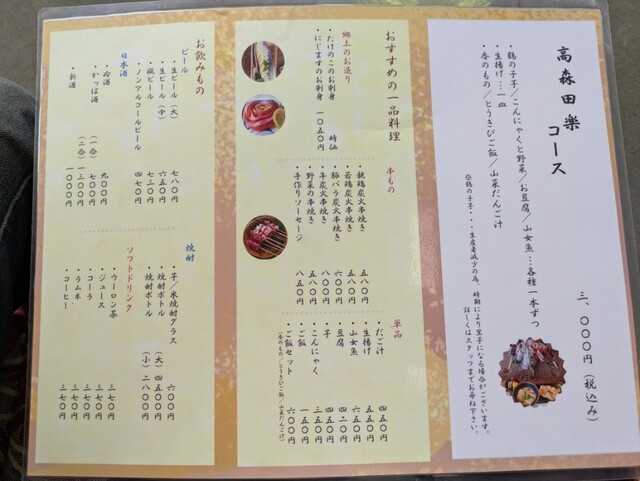 高森田楽コース
・鶴の子芋/こんにゃくと野菜/お豆腐/山女魚…各種一本ずつ
・生揚げ…一皿
・香のもの/とうきびご飯/山菜だんご汁
※鶴の子芋・・・生産者減少の為、時期により里芋になる場合がございます。
詳しくはスタッフまでお尋ね下さい。
三、〇〇〇円(税込み)
おすすめの一品料理
郷土のお造り
・たけのこのお刺身 時価
・にじますのお刺身 一〇五〇円
串もの
・親鶏炭火串焼き 五八〇円
・若鶏炭火串焼き 五八〇円
・豚バラ炭火串焼き 六〇〇円
・牛炭火串焼き 八〇〇円
・野菜の串焼き 五八〇円
・手作りソーセージ 八五〇円
単品
・だご汁 四五〇円
・生揚げ 五五〇円
・山女魚 六五〇円
・豆腐 四二〇円
・芋 四五〇円
・こんにゃく 三五〇円
・ご飯 一五〇円
・ご飯セット 六〇〇円
(香のもの/とうきびご飯/山菜だんご汁)
お飲みもの
ビール
・生ビール(大) 七八〇円
・生ビール(中) 六五〇円
・瓶ビール 七三〇円
・ノンアルコールビール 四七〇円
日本酒
・冷酒 九〇〇円
・かっぽ酒 (一合) 七〇〇円
(二合) 一三〇〇円
・新酒 一〇〇〇円
焼酎
・芋/米焼酎グラス 六〇〇円
・焼酎ボトル (大) 四五〇〇円
・焼酎ボトル (小) 二八〇〇円
ソフトドリンク
・ウーロン茶 三七〇円
・ジュース 三七〇円
・コーラ 三七〇円
・ラムネ 三七〇円
・コーヒー 三七〇円